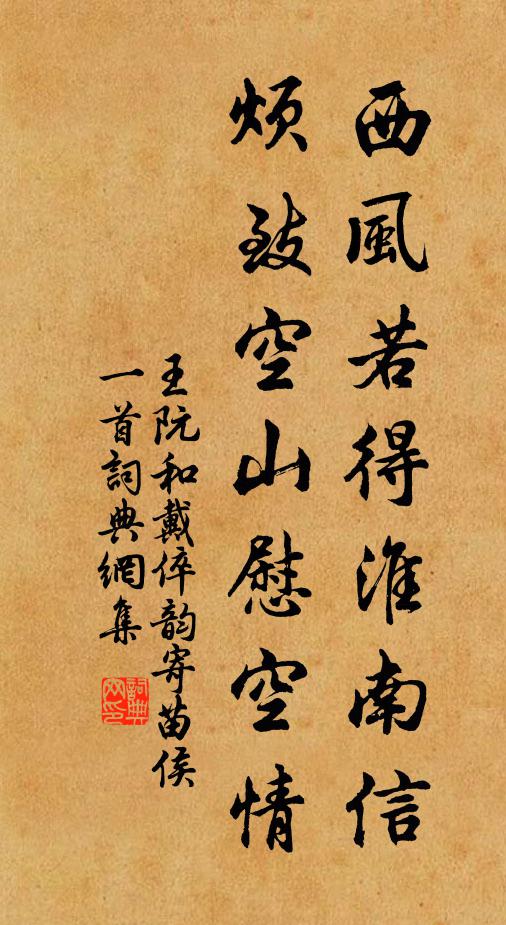 西風若得淮南信
煩致空山慰空情
王阮和戴倅韵寄苗侯
一首詞典網集
詞典
网印